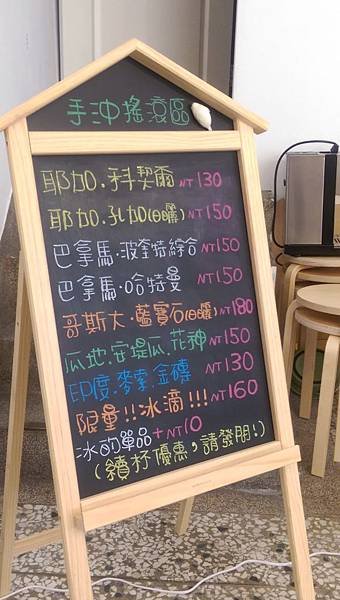 手沖搖滾區
耶加.科契爾 NT130
耶加.孔加(日曬) NT150
巴拿馬.波奎特綜合 NT150
巴拿馬.哈特曼 NT150
哥斯大.藍寶石(日曬) NT180
瓜地.安堤瓜.花神 NT150
印度.麥索.金磚 NT130
限量!!冰滴!!! NT160
冰的單品+NT10
(續杯優惠,請發問:)